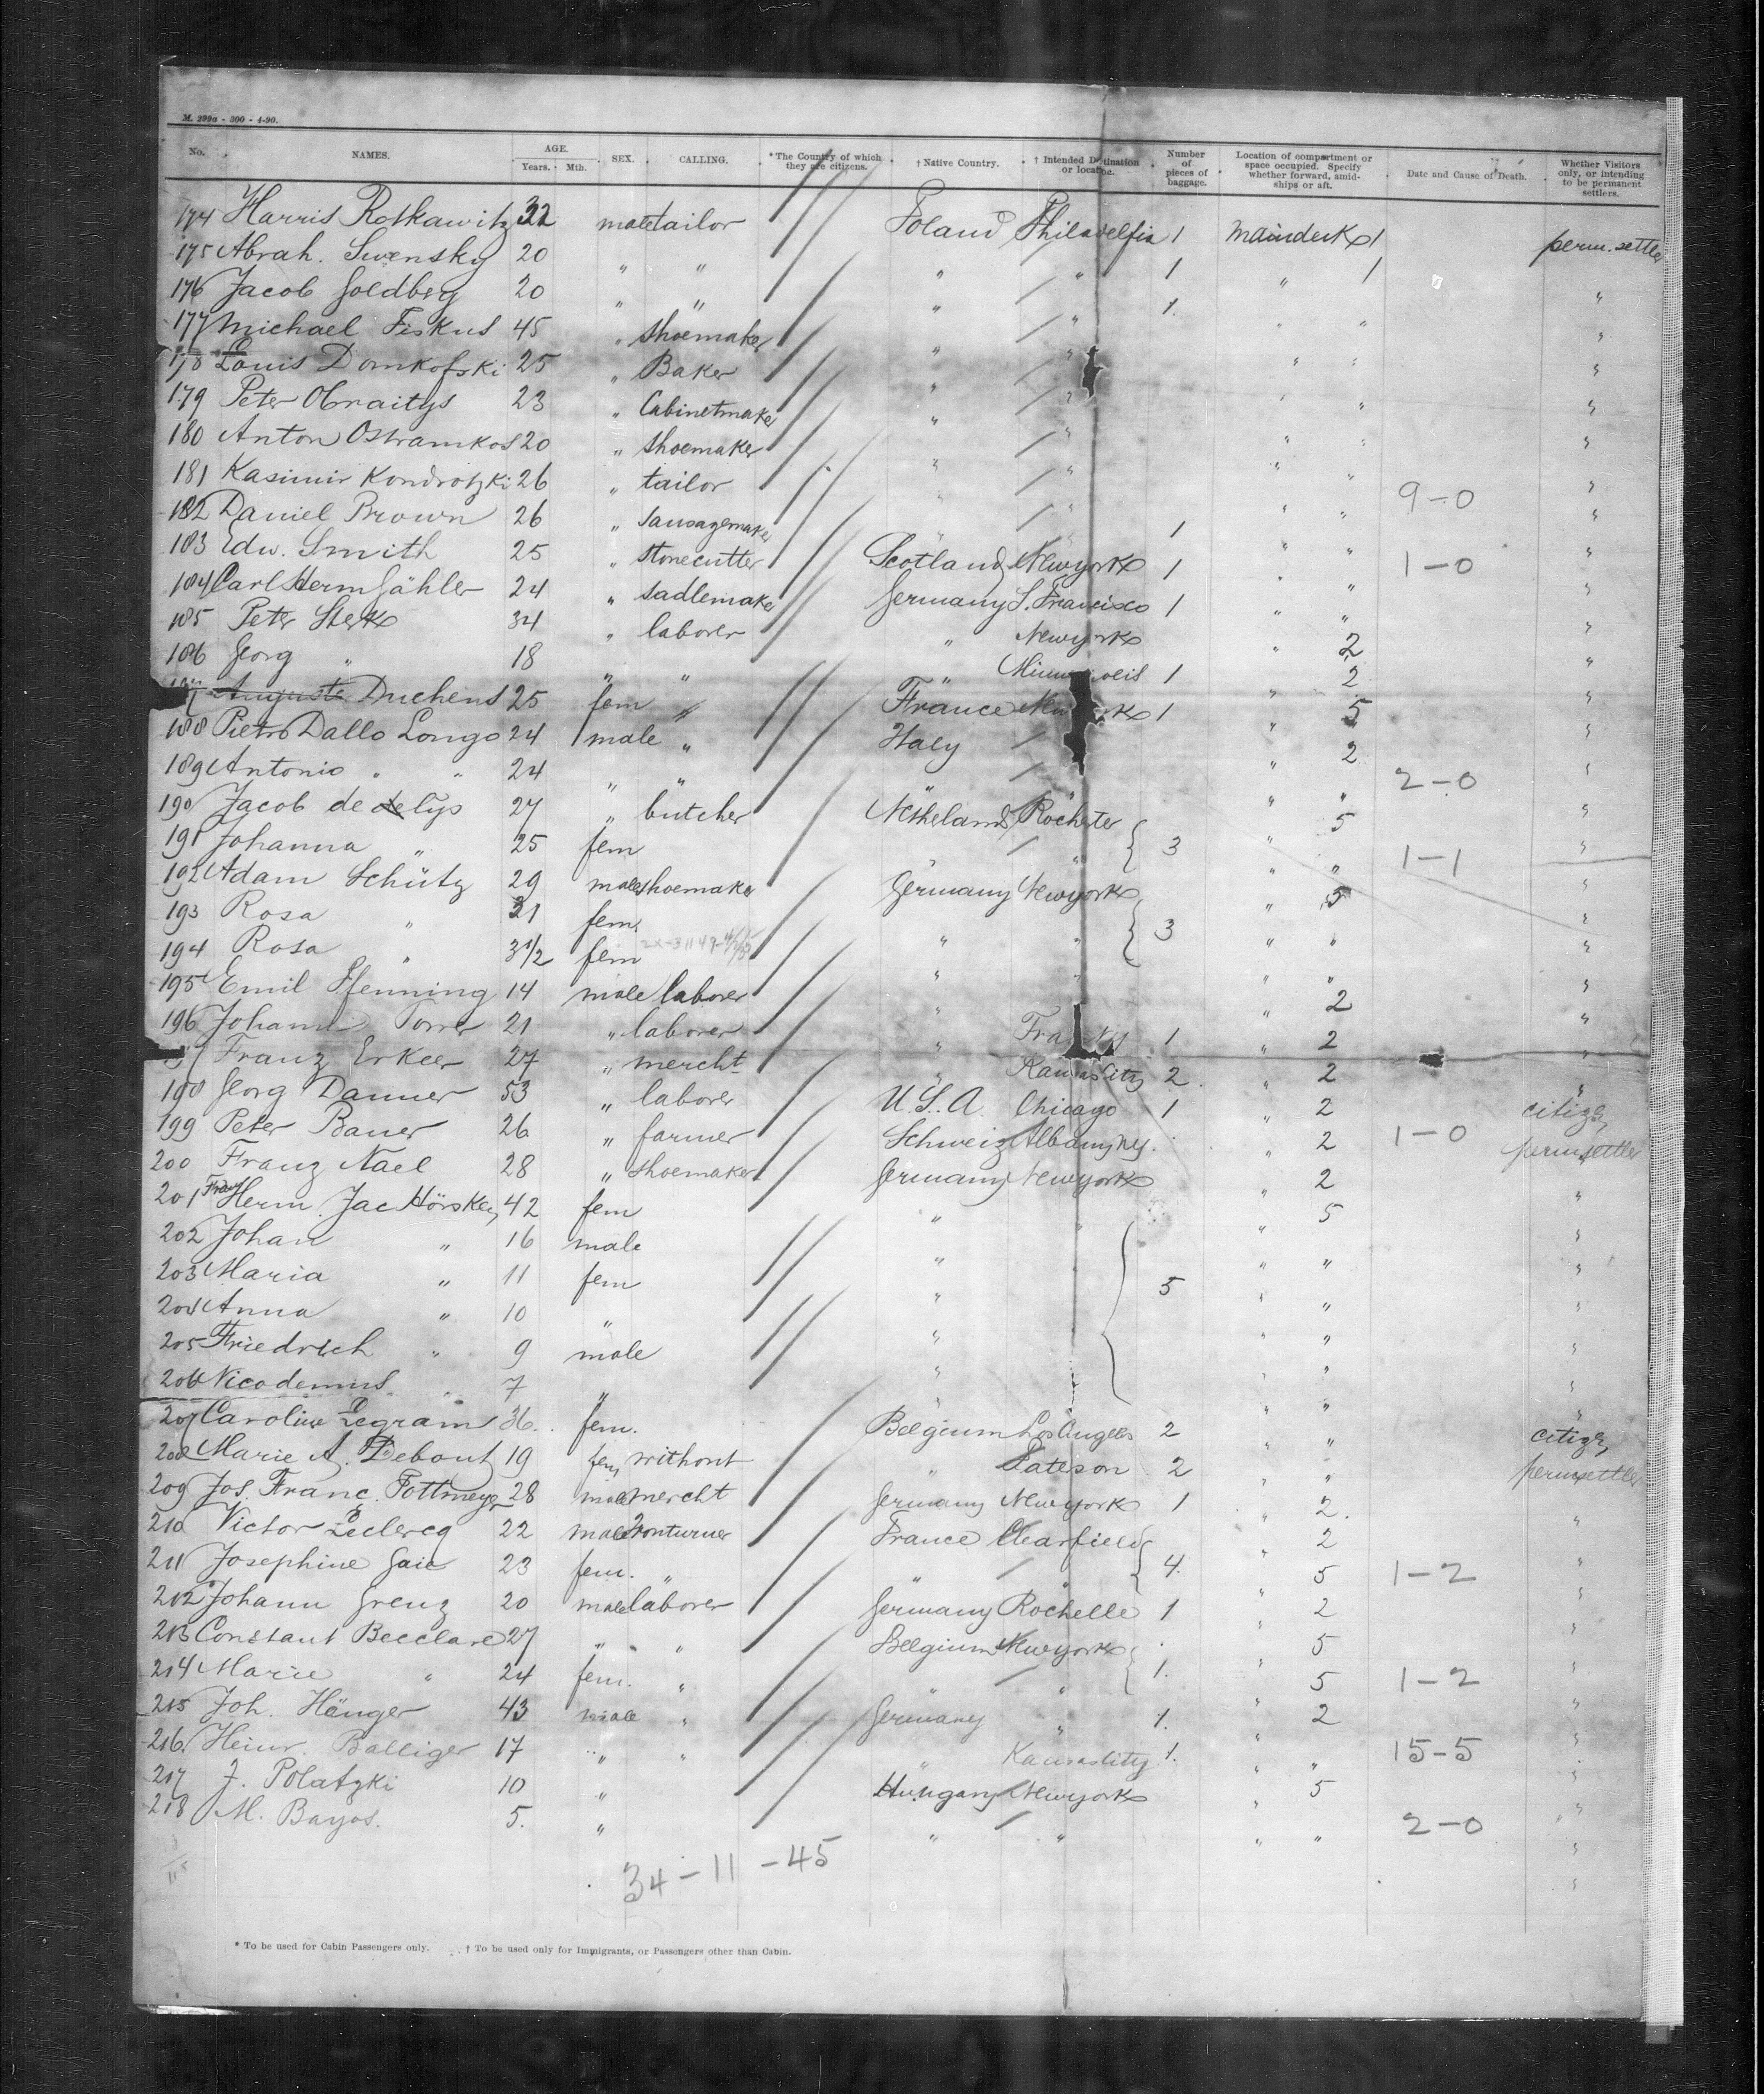 M. 299a - 300 - 4-90.
No. NAMES. AGE. Years. Mth. SEX. CALLING. *The Country of which they are citizens. † Native Country. † Intended Destination or location. Number of pieces of baggage. Location of compartment or space occupied. Specify whether forward, amidships or aft. Date and Cause of Death. Whether Visitors only, or intending to be permanent settlers.
174 Harris Rotkawitz 32 male tailor Poland Philadelfia 1 Maindeck 1 perm. settler
175 Abrah. Swensky 20 " " " " 1 " 1 "
176 Jacob Goldberg 20 " " " " 1. " " "
177 Michael Fiskus 45 " shoemaker " " " " "
178 Louis Domkofski 25 " Baker " " " " "
179 Peter Obraitys 23 " Cabinetmaker " " " " "
180 Anton Ostramkos 20 " shoemaker " " " " "
181 Kasimir Kondrotzki 26 " tailor " " " " 9-0 "
182 Daniel Brown 26 " Sausagemaker " " 1 " " "
183 Edw. Smith 25 " stonecutter Scotland Newyork 1 " " 1-0 "
184 Carl Herm Gähler 24 " sadlemaker Germany S. Francisco 1 " " "
185 Peter Sterk 34 " laborer " Newyork " 2 "
186 Georg " 18 " " " 1 " 2 "
Auguste Duchens 25 fem " France 1 " 5 "
188 Pietro Dallo Longo 24 male " Italy " 2 "
189 Antonio " " 24 " " " " " " 2-0 "
190 Jacob de Lys 27 " butcher Netheland Rochester " 5 "
191 Johanna " 25 fem " " 3 " " 1-1 "
192 Adam Schütz 29 male shoemaker Germany Newyork " 5 "
193 Rosa " 31 fem " " 3 " " "
194 Rosa " 3 1/2 fem " " " " "
195 Emil Pfenning 14 male laborer " " 2 "
196 Johann 21 " laborer " 1 " 2 "
Franz Erker 27 " mercht " Kansas City 2 " 2 "
198 Georg Danner 53 " laborer U.S.A. Chicago 1 " 2 citize,
199 Peter Bauer 26 " farmer Schweiz Albany NY. " 2 1-0 perm settler
200 Franz Nael 28 " shoemaker Germany Newyork " 2 "
201 Frau Herm. Jac Hörsken 42 fem " " " 5 "
202 Johan " 16 male " " " "
203 Maria " 11 fem " 5 " " "
204 Anna " 10 " " " " "
205 Friedrich " 9 male " " " "
206 Nicodemus " 7 " " " "
207 Caroline Legram 36. fem. Belgium Los Angeles 2 " " citize,
208 Marie A. Debout 19 fem without " Paterson 2 " " perm settler
209 Jos. Franc. Pottmeyer 28 male mercht Germany Newyork 1 " 2. "
210 Victor Leclercq 22 male Ironturner France Clearfield " 2 "
211 Josephine Gaie 23 fem. " " " 4. " 5 1-2 "
212 Johann Grenz 20 male laborer Germany Rochelle 1 " 2 "
213 Constant Becclare 27 " " Belgium Newyork " 5 "
214 Marie " 24 fem. " " " 1. " 5 1-2 "
215 Joh. Hänger 43 male " Germany " 1. " 2 "
216. Heinr. Balliger 17 " " " Kansas City 1. " " 15-5 "
217 J. Polatzki 10 " Hungary Newyork " 5 "
218 M. Bayos. 5. " " " " " 2-0 "
34-11-45
* To be used for Cabin Passengers only. † To be used only for Immigrants, or Passengers other than Cabin.